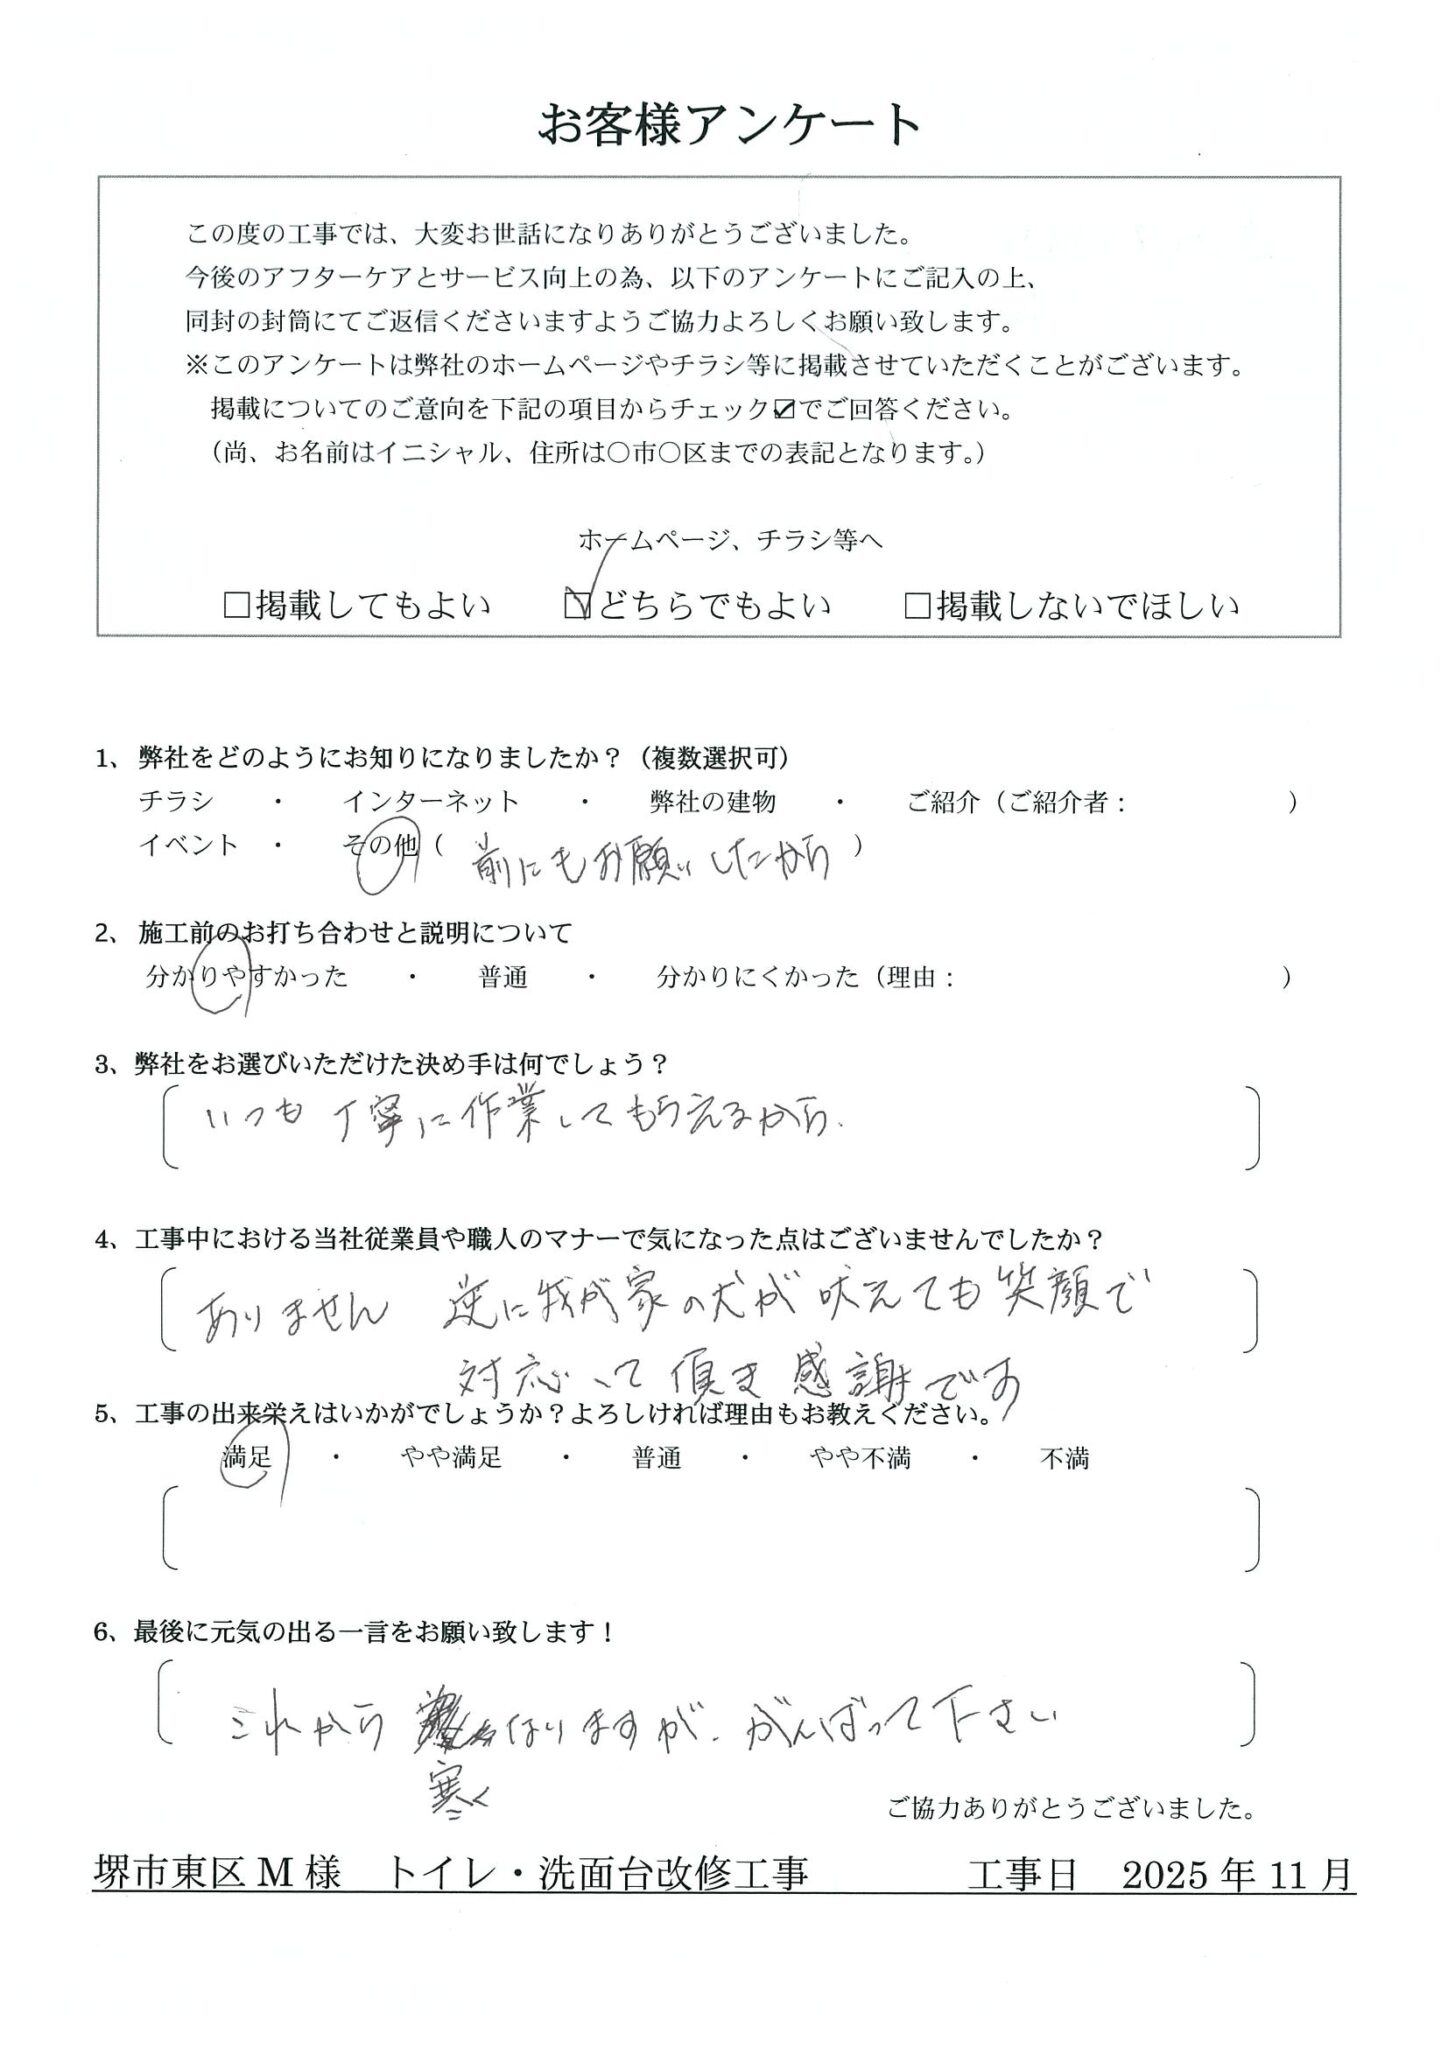 お客様アンケート
この度の工事では、大変お世話になりありがとうございました。
今後のアフターケアとサービス向上の為、以下のアンケートにご記入の上、
同封の封筒にてご返信くださいますようご協力よろしくお願い致します。
※このアンケートは弊社のホームページやチラシ等に掲載させていただくことがございます。
掲載についてのご意向を下記の項目からチェック☑でご回答ください。
（尚、お名前はイニシャル、住所は○市○区までの表記となります。）
ホームページ、チラシ等へ
□掲載してもよい ☑どちらでもよい □掲載しないでほしい
1、弊社をどのようにお知りになりましたか？（複数選択可）
チラシ ・ インターネット ・ 弊社の建物 ・ ご紹介（ご紹介者： ）
イベント ・ その他（ 前にもお願いしたから ）
2、施工前のお打ち合わせと説明について
分かりやすかった ・ 普通 ・ 分かりにくかった（理由： ）
3、弊社をお選びいただけた決め手は何でしょう？
いつも丁寧に作業してもらえるから.
4、工事中における当社従業員や職人のマナーで気になった点はございませんでしたか？
ありません 逆に我が家の犬が吠えても笑顔で
対応して頂き感謝です
5、工事の出来栄えはいかがでしょうか？よろしければ理由もお教えください。
満足 ・ やや満足 ・ 普通 ・ やや不満 ・ 不満
6、最後に元気の出る一言をお願い致します！
これから なりますが、がんばって下さい
寒く
ご協力ありがとうございました。
堺市東区 M 様 トイレ・洗面台改修工事 工事日 2025 年 11 月